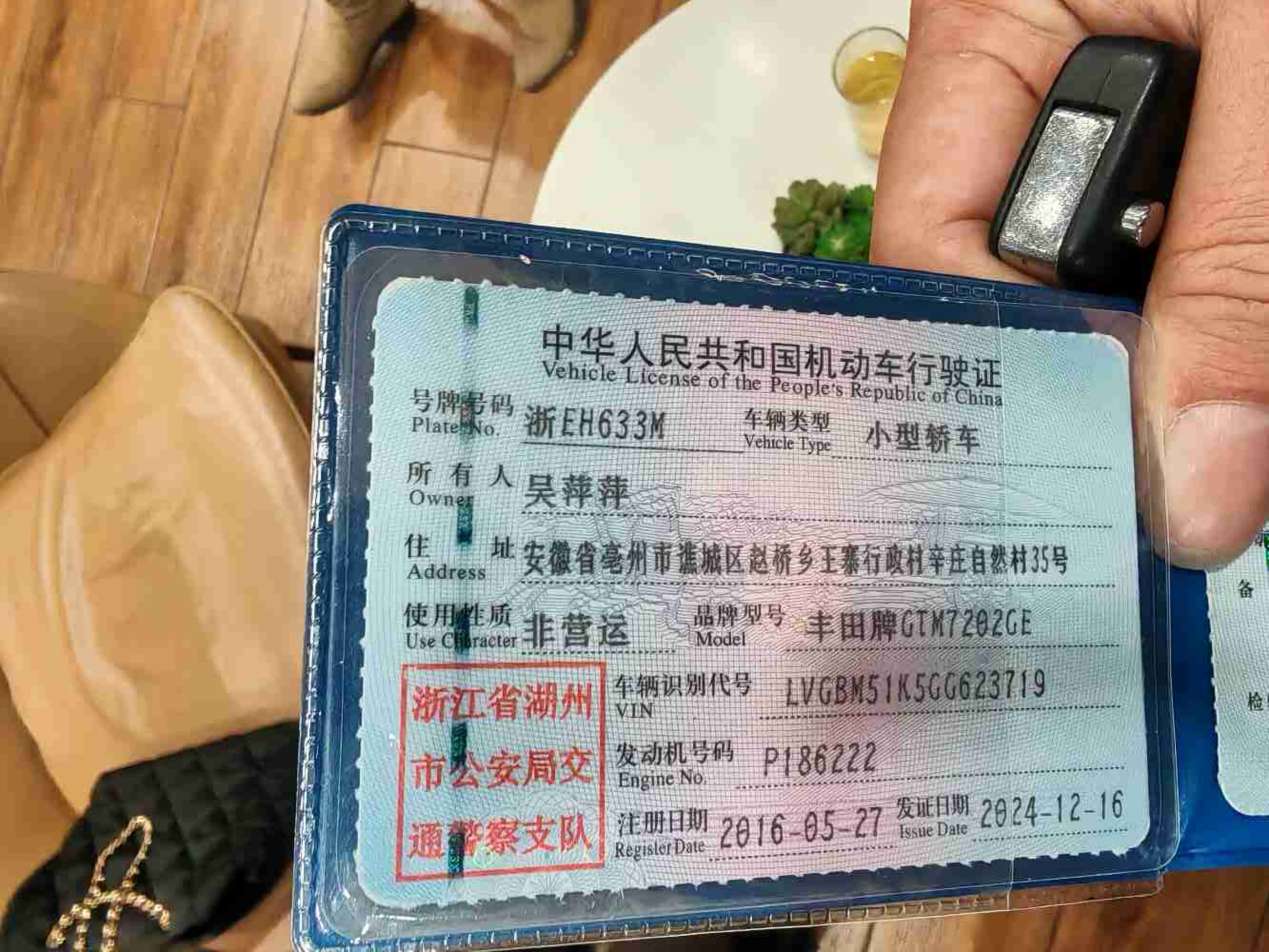 中华人民共和国机动车行驶证
Vehicle License of the People's Republic of China
号牌号码 浙EH633M 车辆类型 小型轿车
Plate No. Vehicle Type
所有人 吴萍萍
Owner
住址 安徽省亳州市谯城区赵桥乡王寨行政村辛庄自然村35号
Address
使用性质 非营运 品牌型号 丰田牌GTM7202GE
Use Character Model
浙江省湖州
市公安局交
通警察支队
车辆识别代号 LVGBM51K5GG623719
VIN
发动机号码 P186222
Engine No.
注册日期 2016-05-27 发证日期 2024-12-16
Register Date Issue Date
备
检